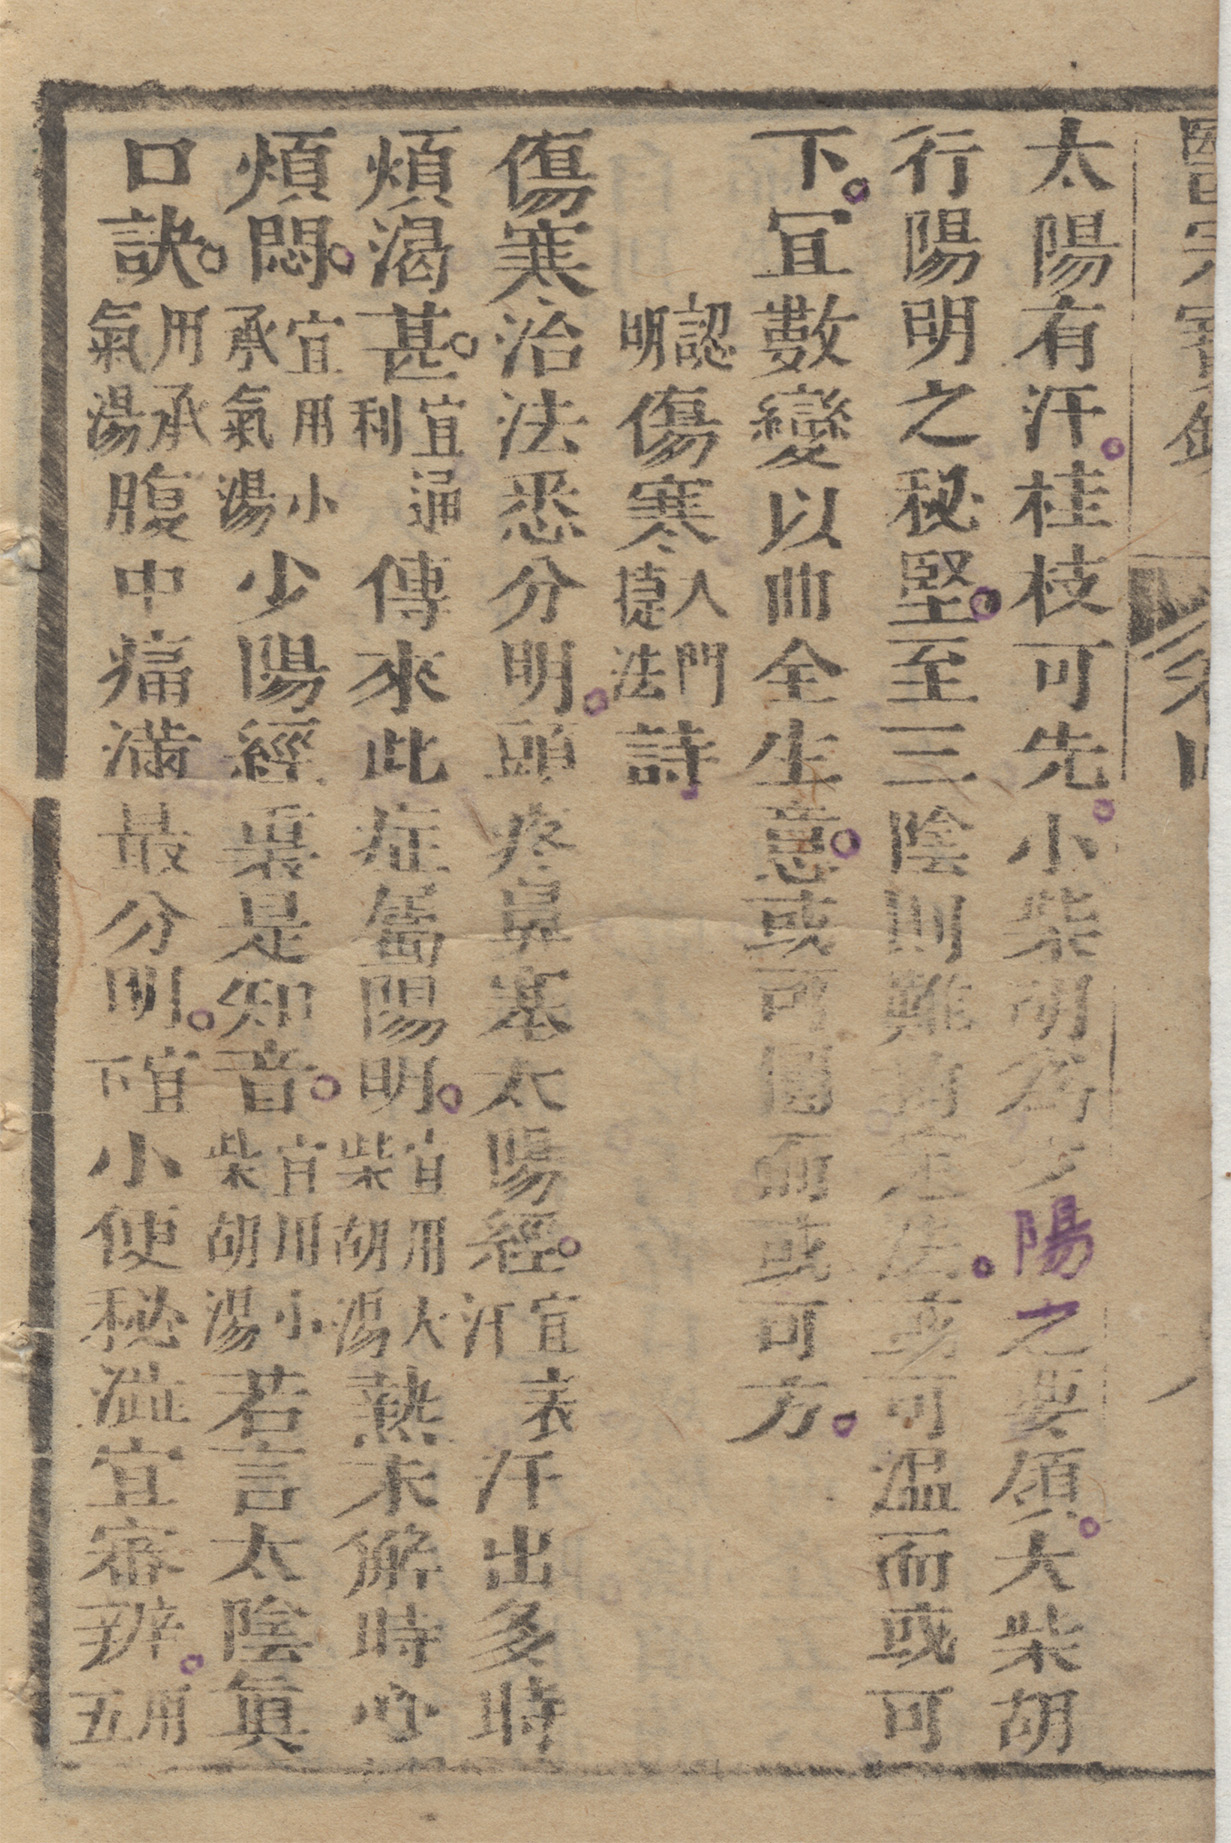 太陽有汗桂枝可先小柴胡為少陽之要領大柴胡
行陽明之秘堅至三陰則難拘定法或可溫而或可
下宜數變以曲全生意或可圓而或可方
認明傷寒入門捷法詩
傷寒治法悉分明頭疼鼻塞太陽經宜表汗汗出多時
煩渴甚宜通利傳來此症屬陽明宜用大柴胡湯熱未解時心
煩悶宜用小承氣湯少陽經裏是知音宜用小柴胡湯若言太陰真
口訣用承氣湯腹中痛滿最分明宜下小便秘澁宜審辨用五